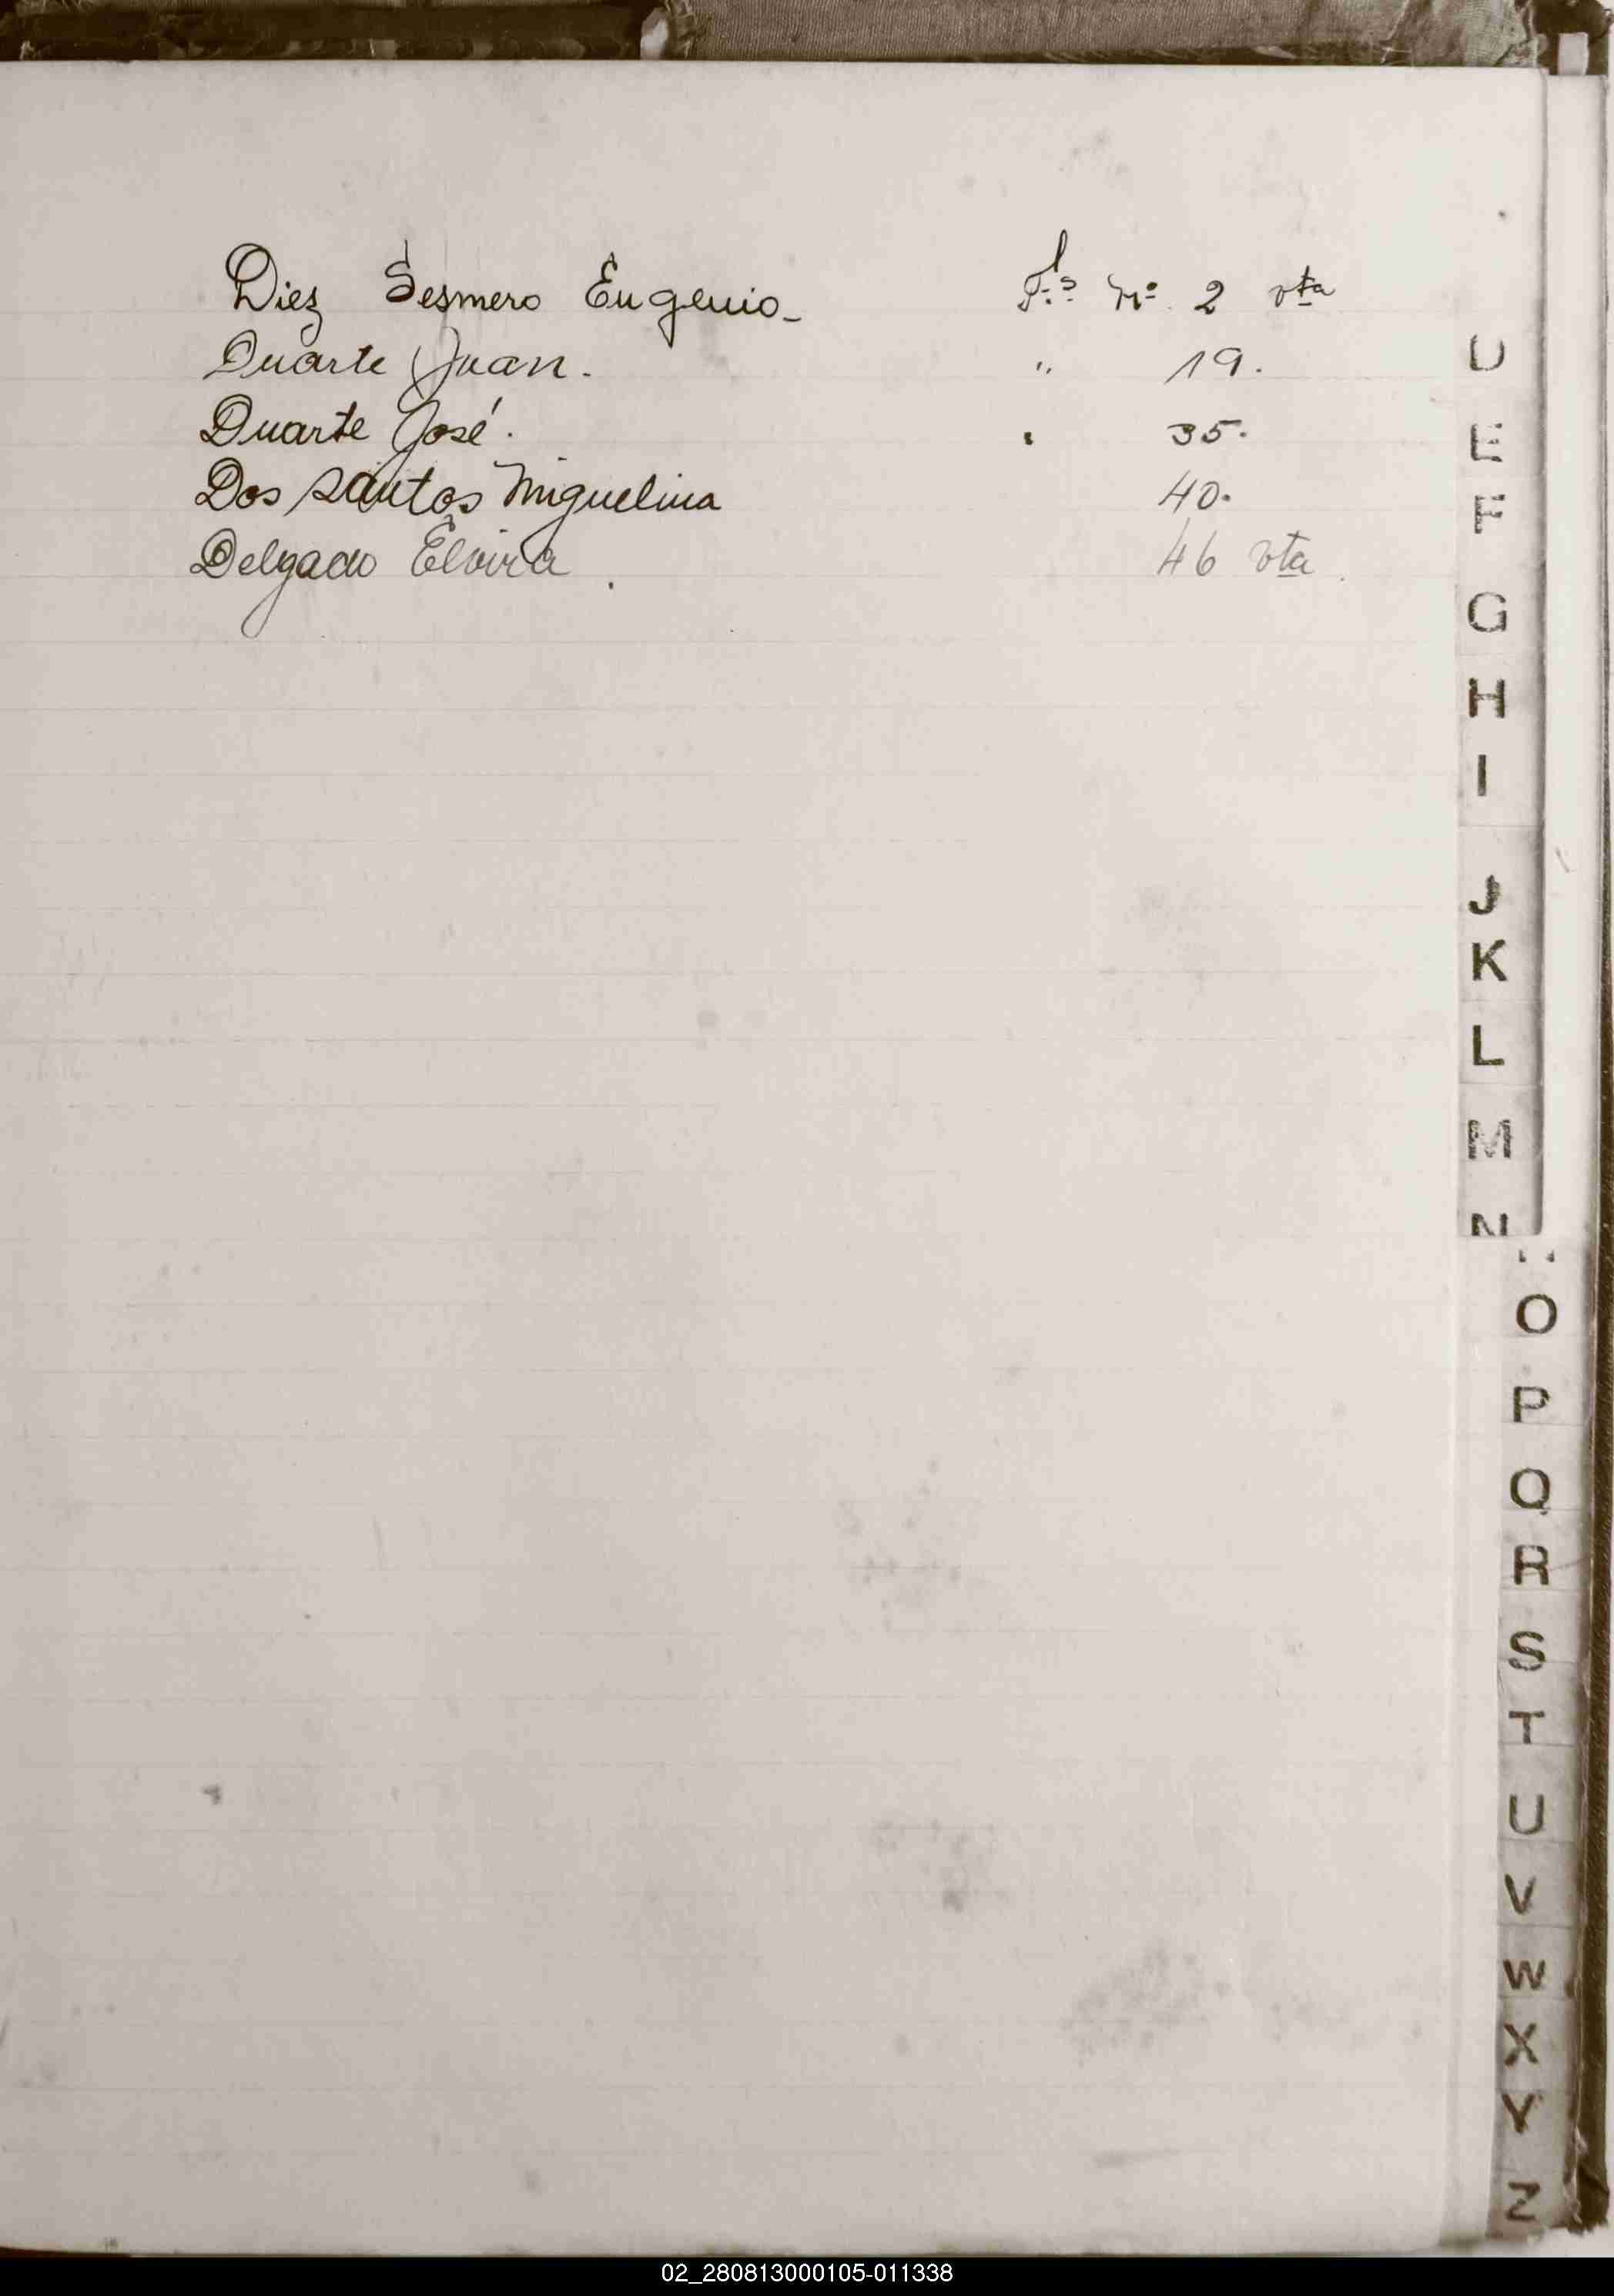 Diez Sesmero Eugenio_ Fls Nº 2 vta
Duarte Juan. " 19.
Duarte José. " 35.
Dos santos Miguelina 40.
Delgado Elvira. 46 vta.
D
E
F
G
H
I
J
K
L
M
N
O
P
Q
R
S
T
U
V
W
X
Y
Z
02_280813000105-011338